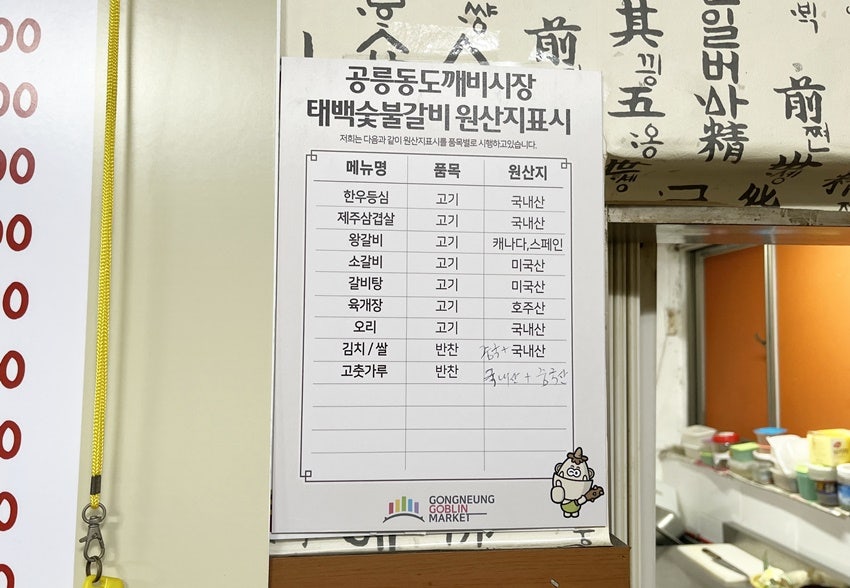 공릉동도깨비시장
태백숯불갈비 원산지표시
저희는 다음과 같이 원산지표시를 품목별로 시행하고있습니다.
메뉴명 품목 원산지
한우등심 고기 국내산
제주삼겹살 고기 국내산
왕갈비 고기 캐나다,스페인
소갈비 고기 미국산
갈비탕 고기 미국산
육개장 고기 호주산
오리 고기 국내산
김치 / 쌀 반찬 + 국내산
고춧가루 반찬 국내산 + 중국산
GONGNEUNG
GOBLIN
MARKET
00
00
00
00
0
0
0
0
0
前
其
낑
五
옹
일
버
精
前
쩐